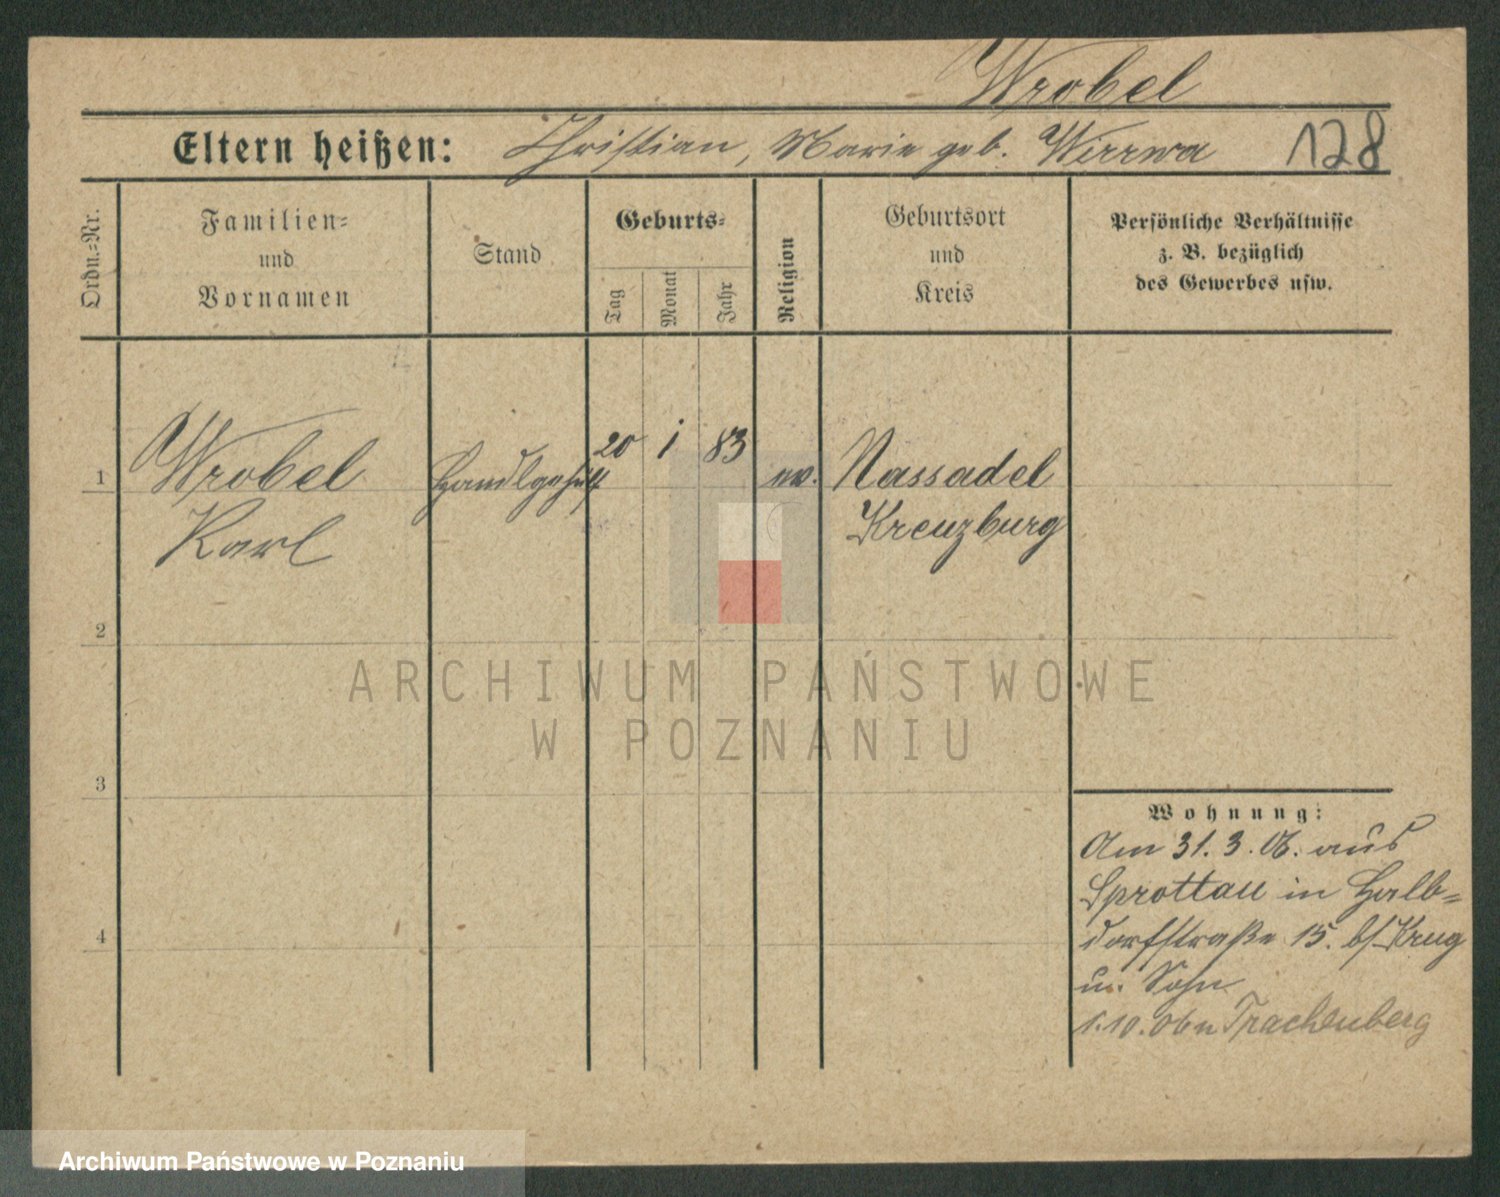 Wrobel
Eltern heißen: Christian, Marie geb. Wirrwa 128
Ordn.=Nr.
Familien=
und
Vornamen
Stand
Geburts=
Tag
Monat
Jahr
Religion
Geburtsort
und
Kreis
Persönliche Verhältnisse
z. B. bezüglich
des Gewerbes usw.
1 Wrobel 20 1 83 ev. Nassadel
Karl Kreuzburg
2
3
4
ARCHIWUM PAŃSTWOWE
W POZNANIU
Wohnung:
Am 31. 3. 06. aus
Sprottau in Halb=
dorfstraße 15. b/ Krug
u. Sohn
1.10.06 n Trachenberg
Archiwum Państwowe w Poznaniu